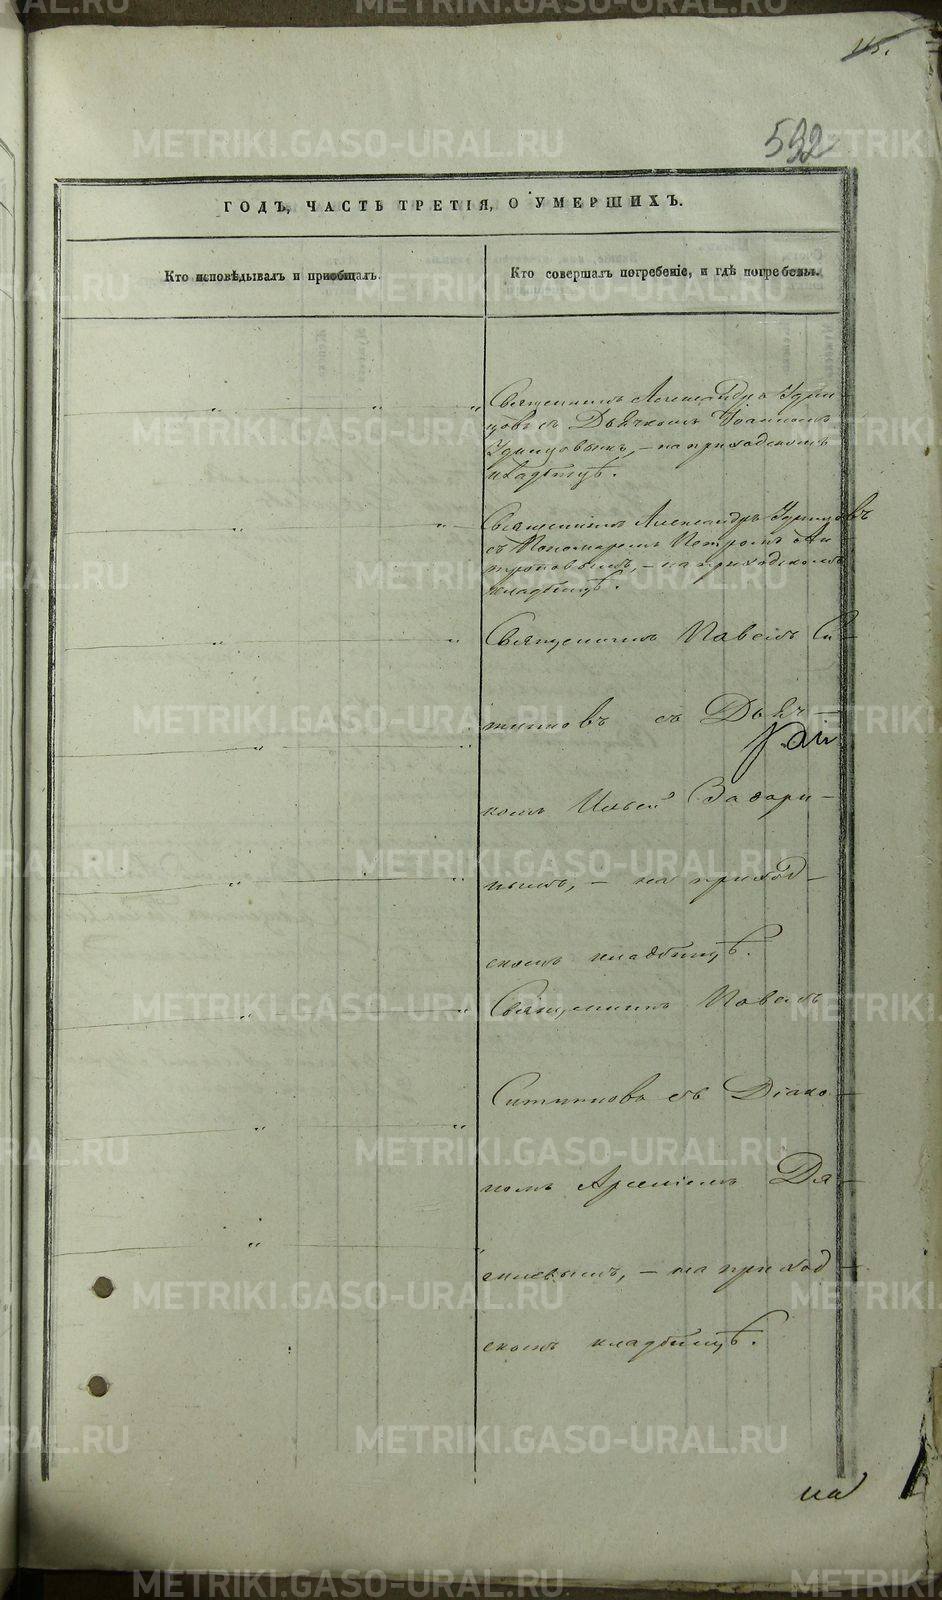 115.
592
ГОДЪ, ЧАСТЬ ТРЕТІЯ, О УМЕРШИХЪ.
Кто исповѣдывалъ и приобщалъ.
Кто совершалъ погребеніе, и гдѣ погребены.
Священникъ Александръ Удин-
цовъ съ Дьячкомъ Іоанномъ
Удинцовымъ, – на приходскомъ
кладбищѣ.
Священникъ Александръ Удинцовъ
съ Пономаремъ Петромъ
– на приходскомъ
кладбищѣ.
Священникъ Павелъ Си-
съ Дьяч-
комъ Ильей
– на приход-
скомъ кладбищѣ.
Священникъ Павелъ
съ Діако-
номъ Арсеніемъ
– на приход-
скомъ кладбищѣ.
METRIKI.GASO-URAL.RU